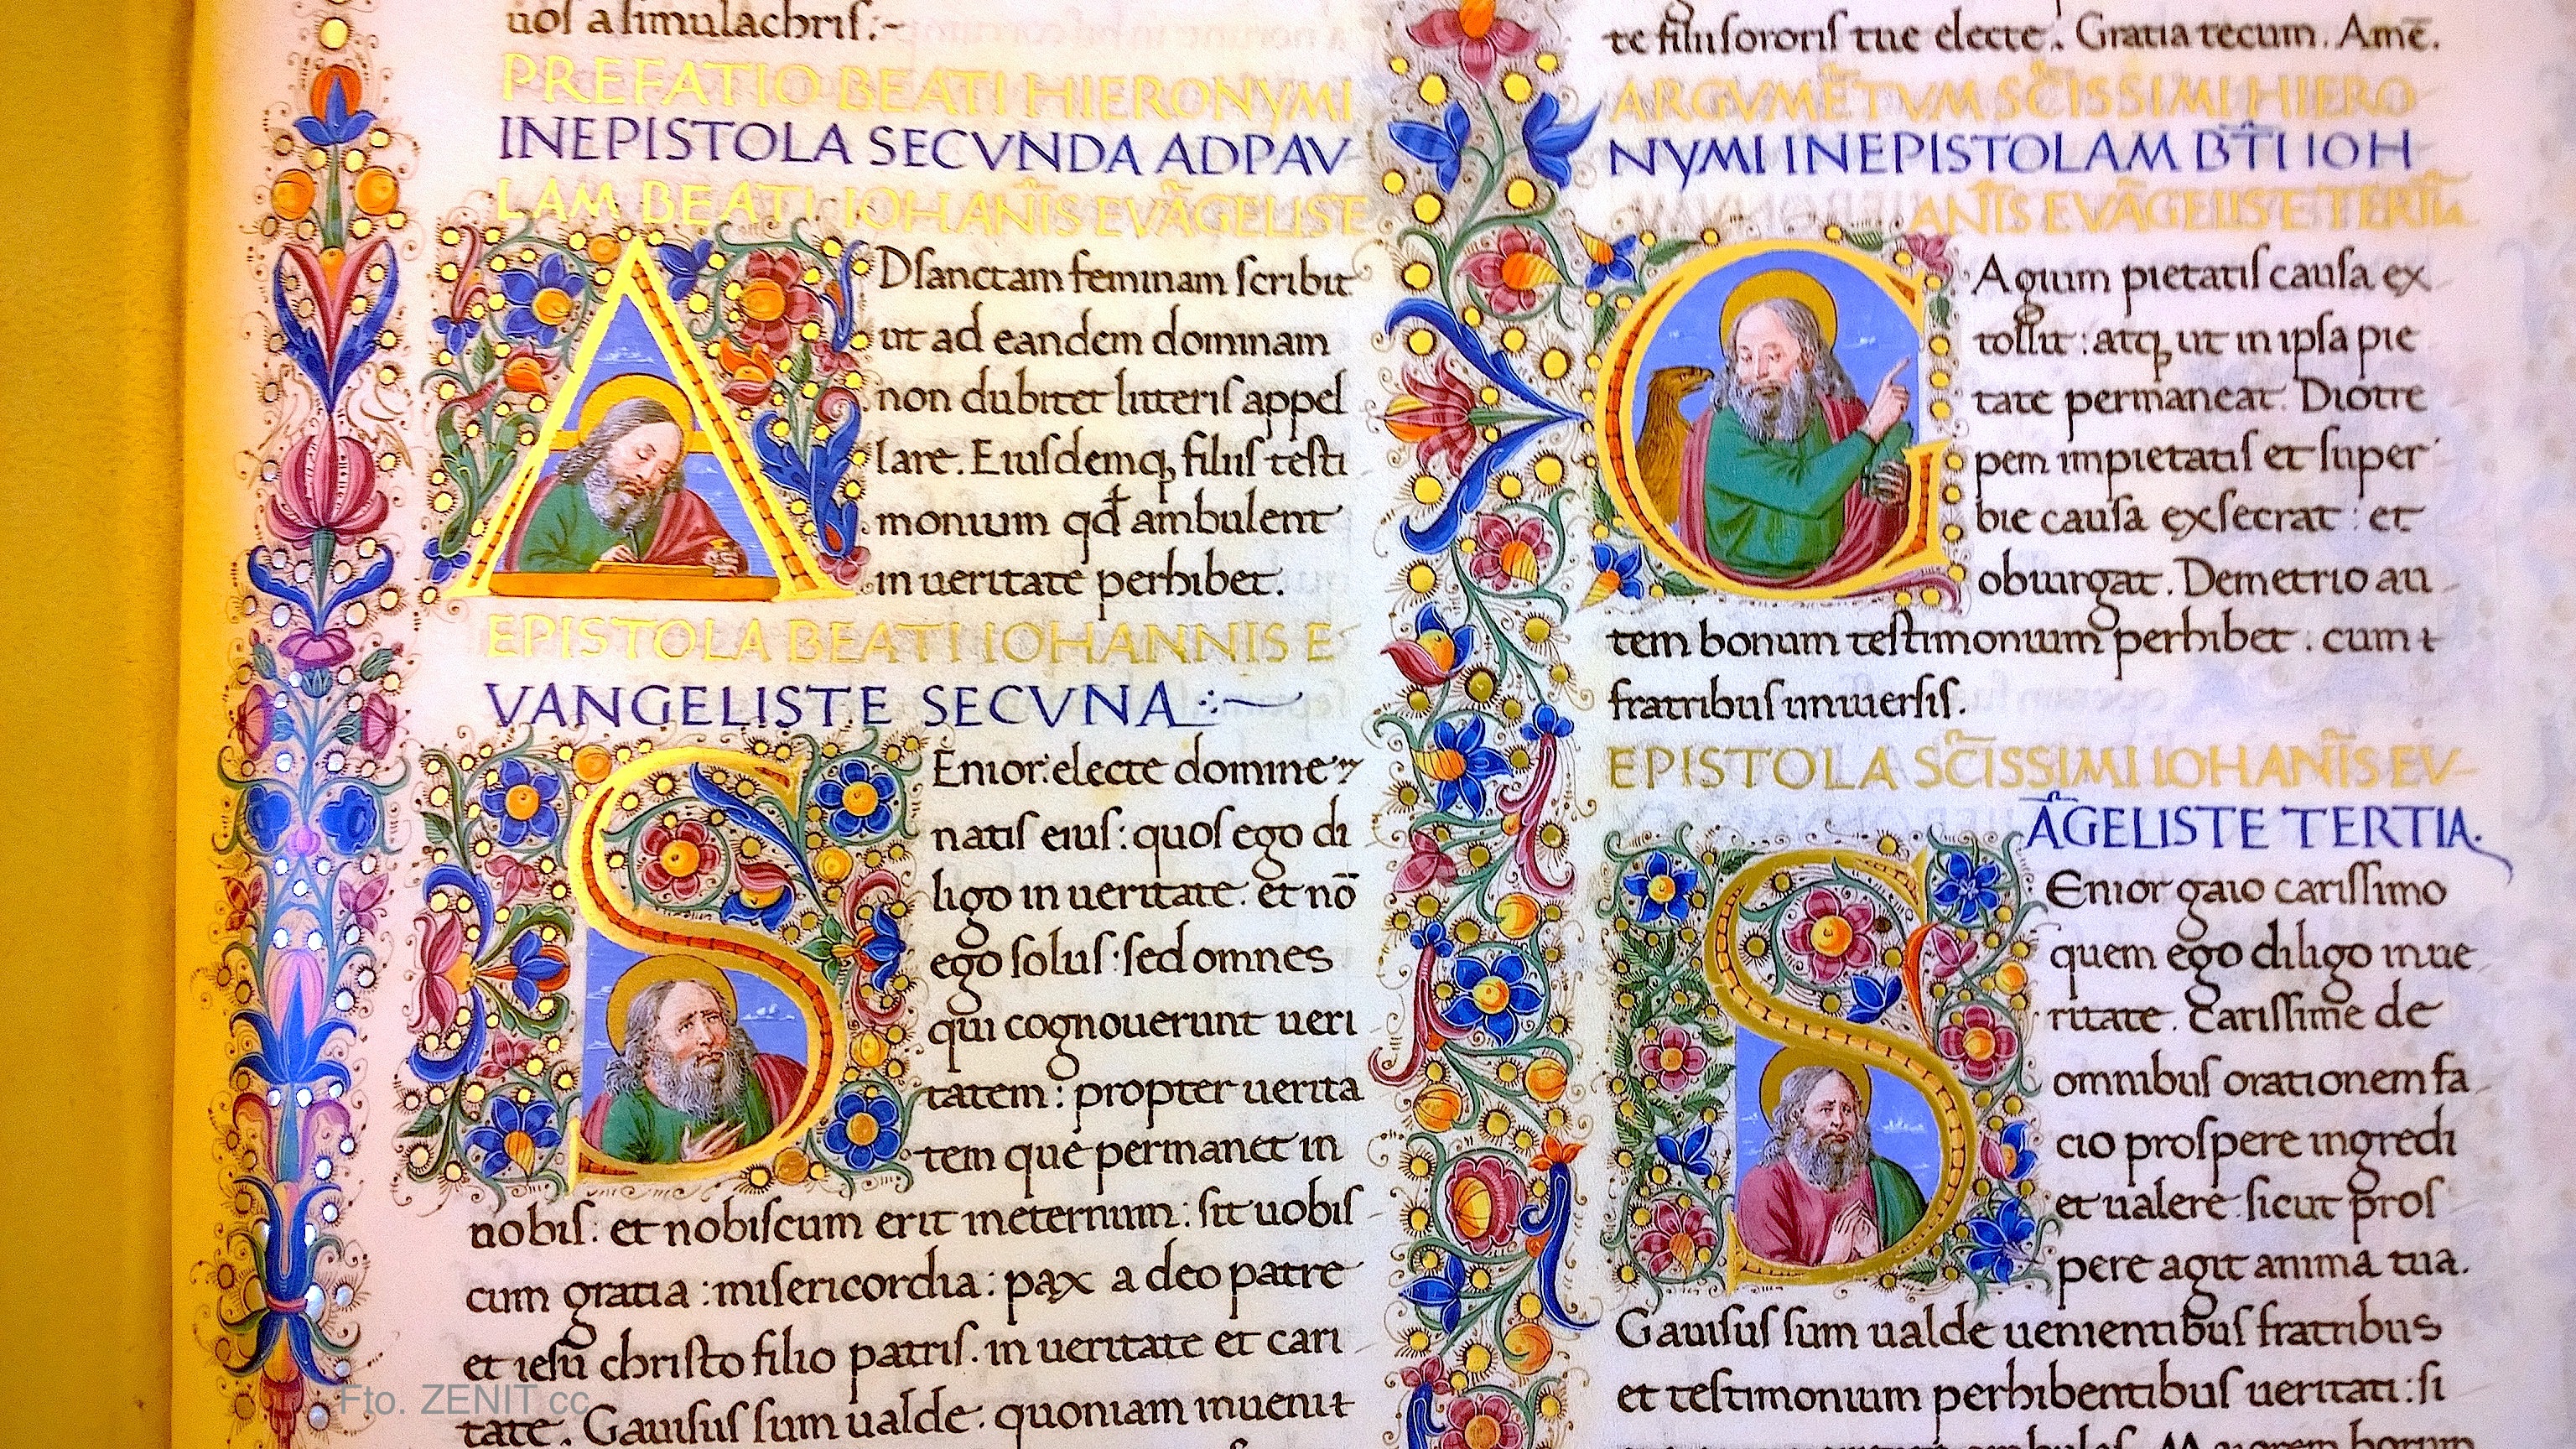 uoſ a ſimulachriſ:~
PREFATIO BEATI HIERONYMI
INEPISTOLA SECVNDA ADPAV-
LAM BEATI IOHAÑIS EVÃGELISTE
ADſanctam feminam ſcribit
ut ad eandem dominam
non dubitet litteriſ appel
lare. Eiuſdemq, filiiſ teſti
monium qđ ambulent
in ueritate perhibet.
EPISTOLA BEATI IOHANNIS E-
VANGELISTE SECVNA .:~
SEnior: electe domine
natiſ eiuſ: quoſ ego di
ligo in ueritate. et nō
ego ſoluſ: ſed omnes
qui cognouerunt ueri
tatem: propter uerita
tem que permanet in
nobiſ: et nobiſcum erit ineternum: ſit uobiſ
cum gratia: miſericordia: pax a deo patre
et ieſu chriſto filio patriſ. in ueritate et cari
tate. Gauiſuſ ſum ualde. quoniam inueni
te filii ſororiſ tue electe. Gratia tecum. Amē.
ARGVMĒTVM SC̃ISSIMI HIERO
NYMI INEPISTOLAM BT̃I IOH
ANĨS EVÃGELISTE
GAgium pietatiſ cauſa ex
tollit: atq, ut in ipſa pie
tate permaneat. Diotre
pem impietatiſ et ſuper
bie cauſa exſecrat: et
obiurgat. Demetrio au
tem bonum teſtimonium perhibet. cum
fratribuſ uniuerſiſ.
EPISTOLA SC̃ISSIMI IOHANĨS EV-
ÃGELISTE TERTIA.
SEnior gaio cariſſimo
quem ego diligo inue
ritate. Cariſſime de
omnibuſ orationem fa
cio proſpere ingredi
et ualere ſicut proſ
pere agit anima tua.
Gauiſuſ ſum ualde uenientibuſ fratribus
et teſtimonium perhibentibuſ ueritati: ſi
Fto. ZENIT cc